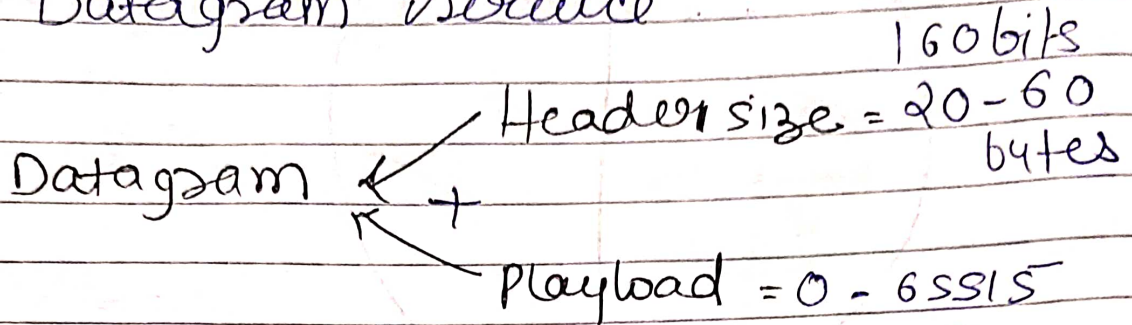 Datagram
160 bits
Header size = 20-60
bytes
Datagram
+
Playload = 0 - 65515